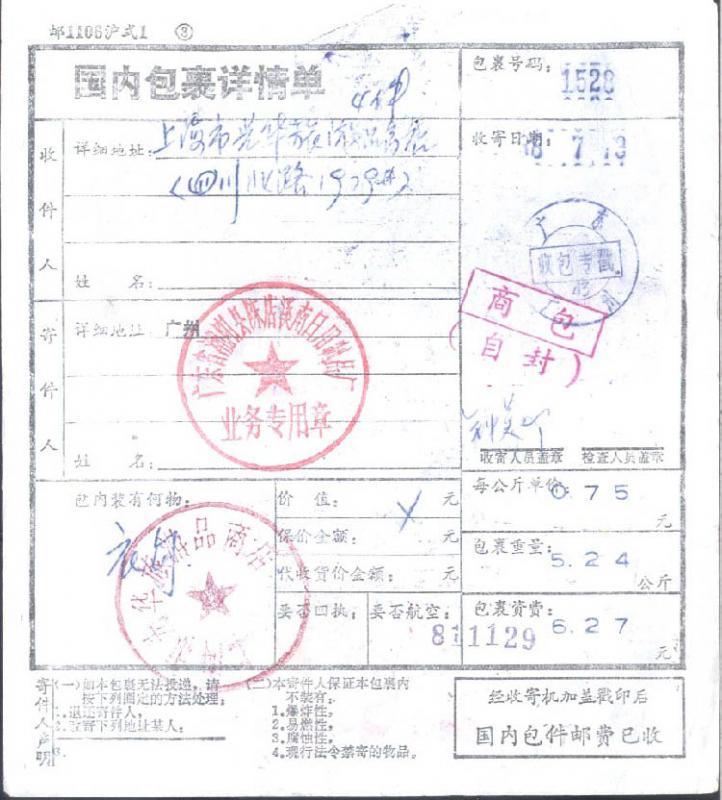 邮1106沪式1 ③
国内包裹详情单
包裹号码：
1528
收件人
详细地址：上海市 华旅游品商店
（四川北路1979#）
姓 名：
收寄日期：
7 13
广东
收包专戳
商包
（自封）
寄件人
详细地址：广州
业务专用章
姓 名：
收寄人员盖章 检查人员盖章
包内装有何物：
价 值： 元
保价金额： 元
代收货价金额： 元
要否回执： 要否航空：
811129
每公斤单价：0 7 5
元
包裹重量：5.24
公斤
包裹资费：6.27
元
寄件人声明
（一）如本包裹无法投递，请
按下列圈定的方法处理：
1.退还寄件人，
2.改寄下列地址某人：
3.
（二）本寄件人保证本包裹内
不装有：
1.爆炸性，
2.易燃性，
3.腐蚀性，
4.现行法令禁寄的物品。
经收寄机加盖戳印后
国内包件邮费已收